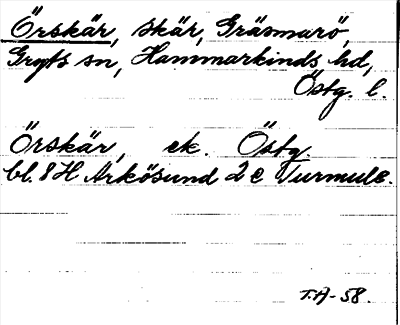 Örskär, skär, Gräsmarö,
Gryts sn, Hammarkinds hd,
Östg. l.
Örskär, ek. Östg.
bl. 8 H Arkösund 2 c Turmulé.
T.A-58.